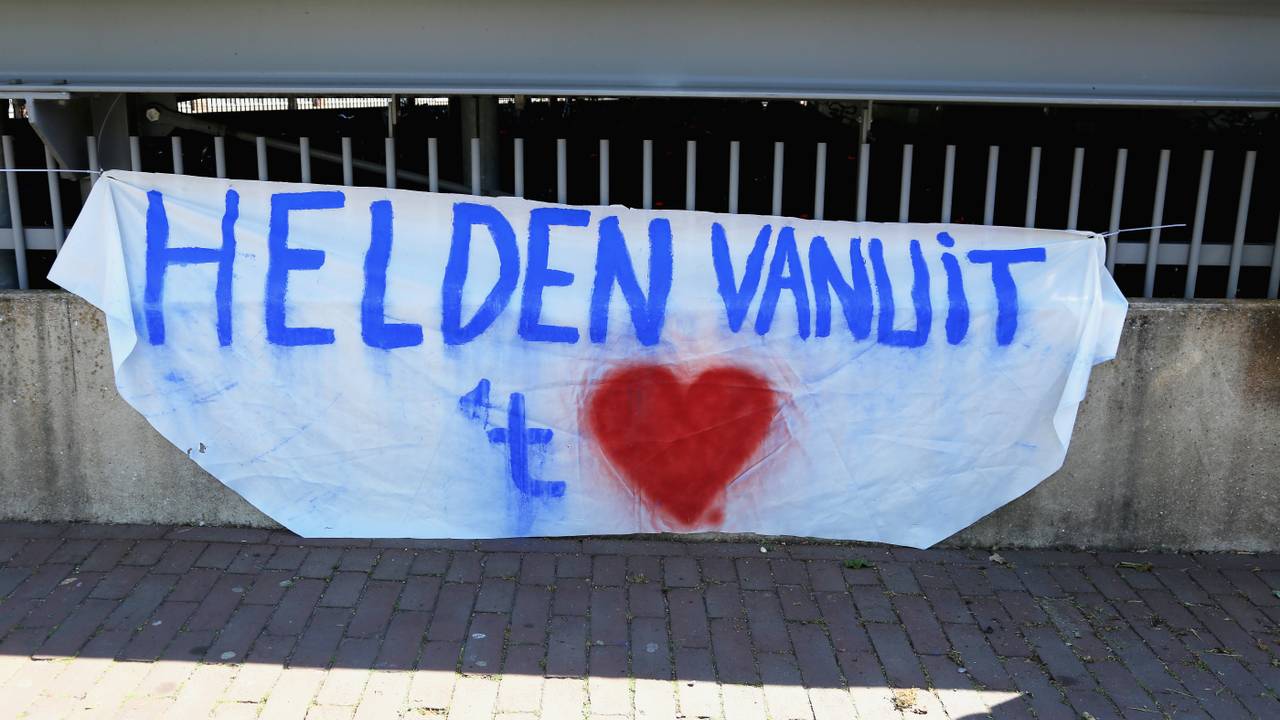 HELDEN VANUiT
't